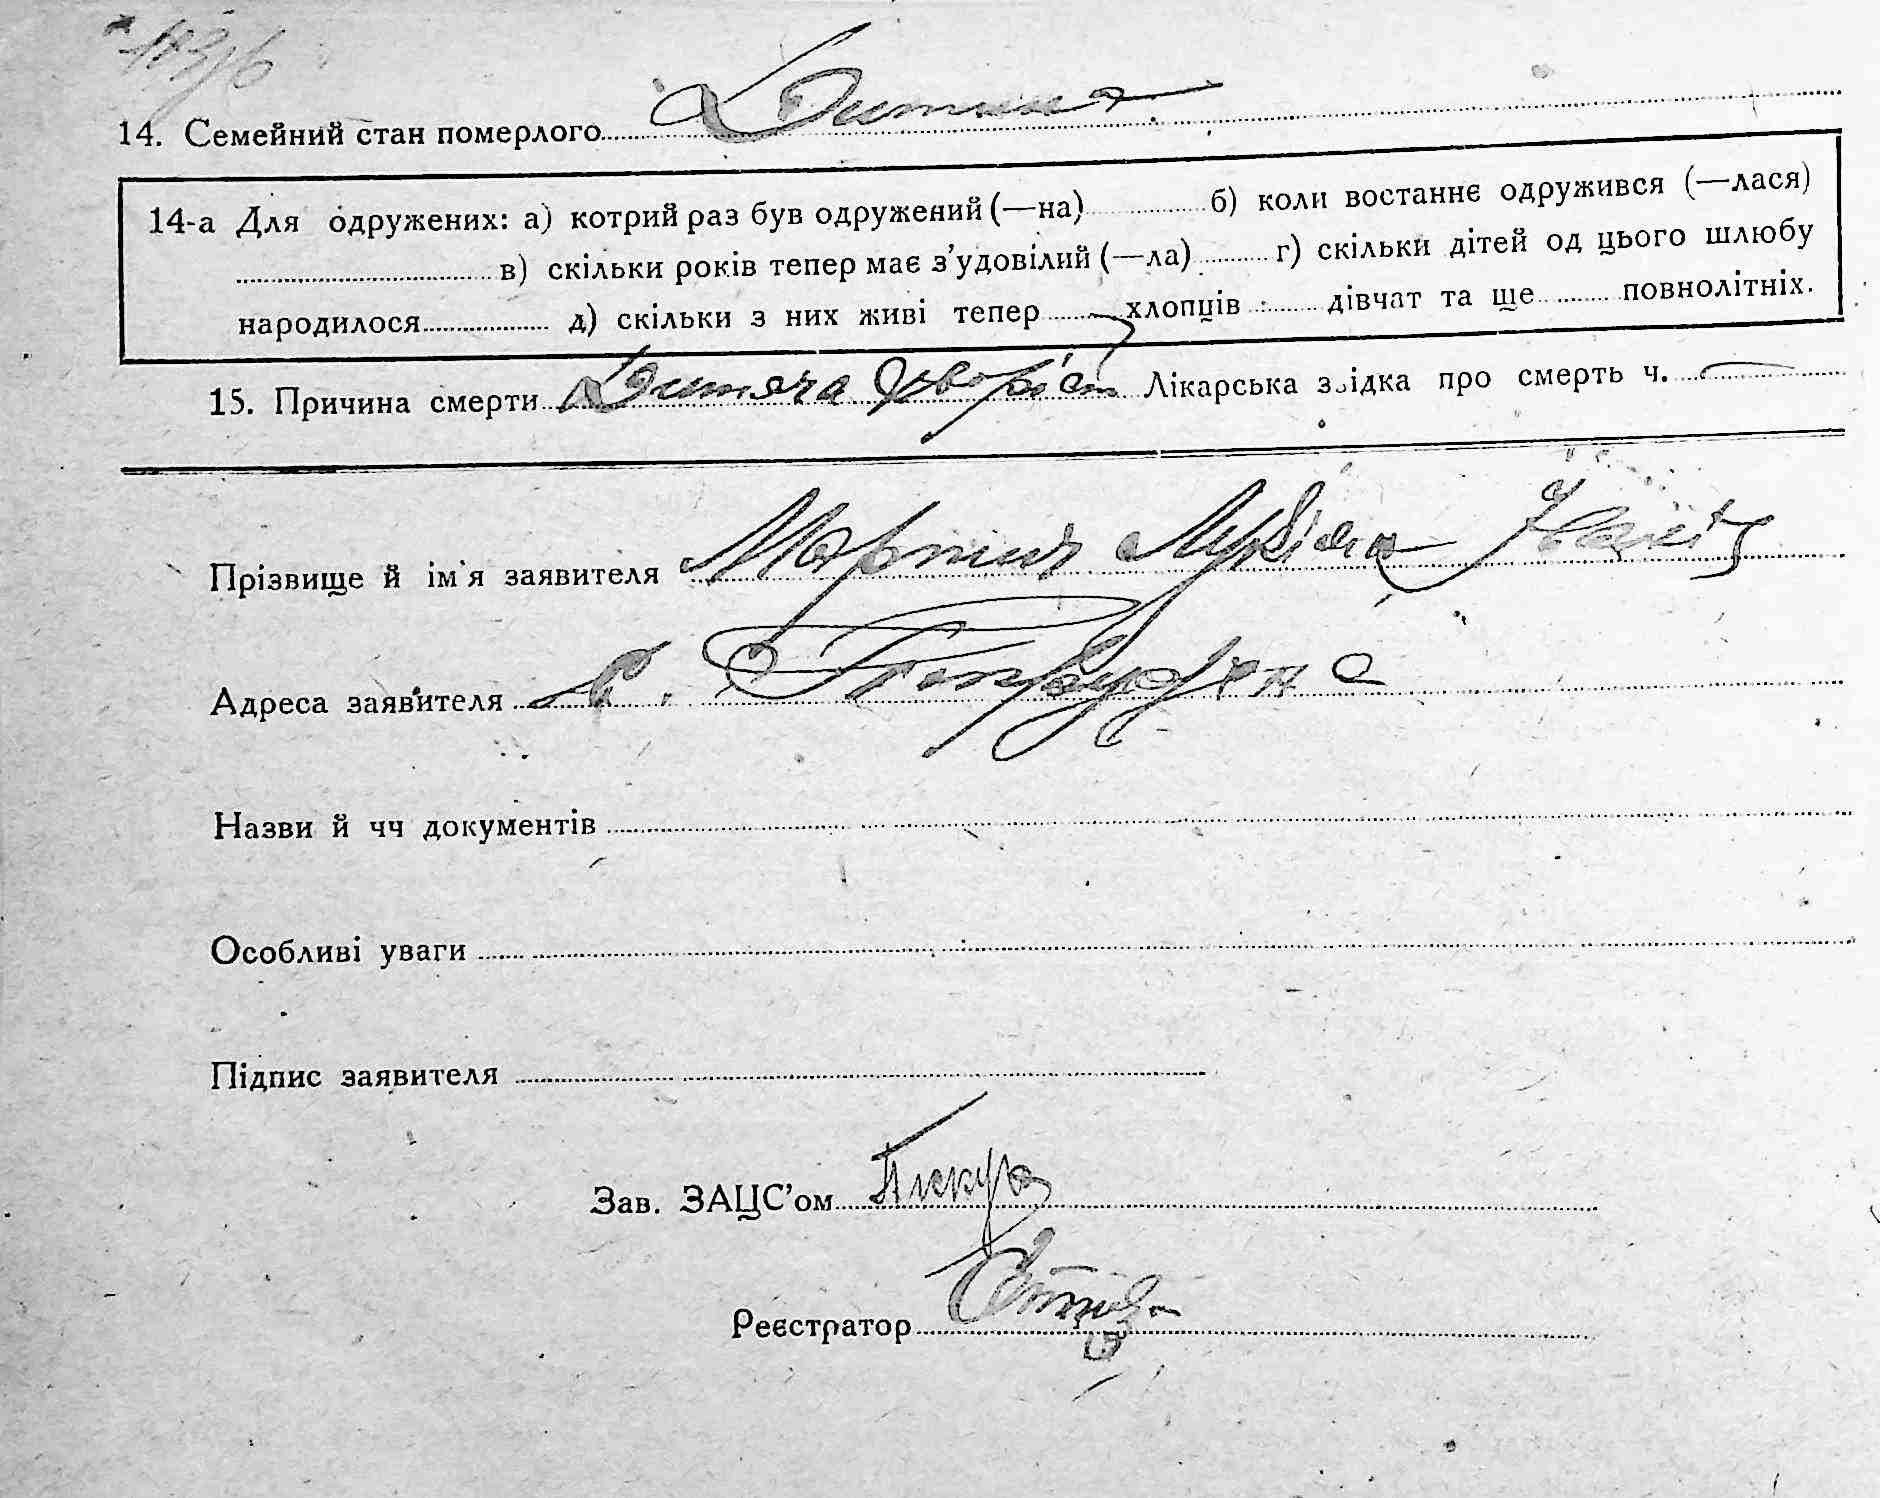 14. Семейний стан померлого Дитина
14-а Для одружених: а) котрий раз був одружений (—на) б) коли востаннє одружився (—лася)
в) скільки років тепер має з'удовілий (—ла) г) скільки дітей од цього шлюбу
народилося д) скільки з них живі тепер хлопців дівчат та ще повнолітніх.
15. Причина смерти Дитяча хворість Лікарська звідка про смерть ч.
Прізвище й ім'я заявителя Мартич
Адреса заявителя с.
Назви й чч документів
Особливі уваги
Підпис заявителя
Зав. ЗАЦС'ом
Реєстратор